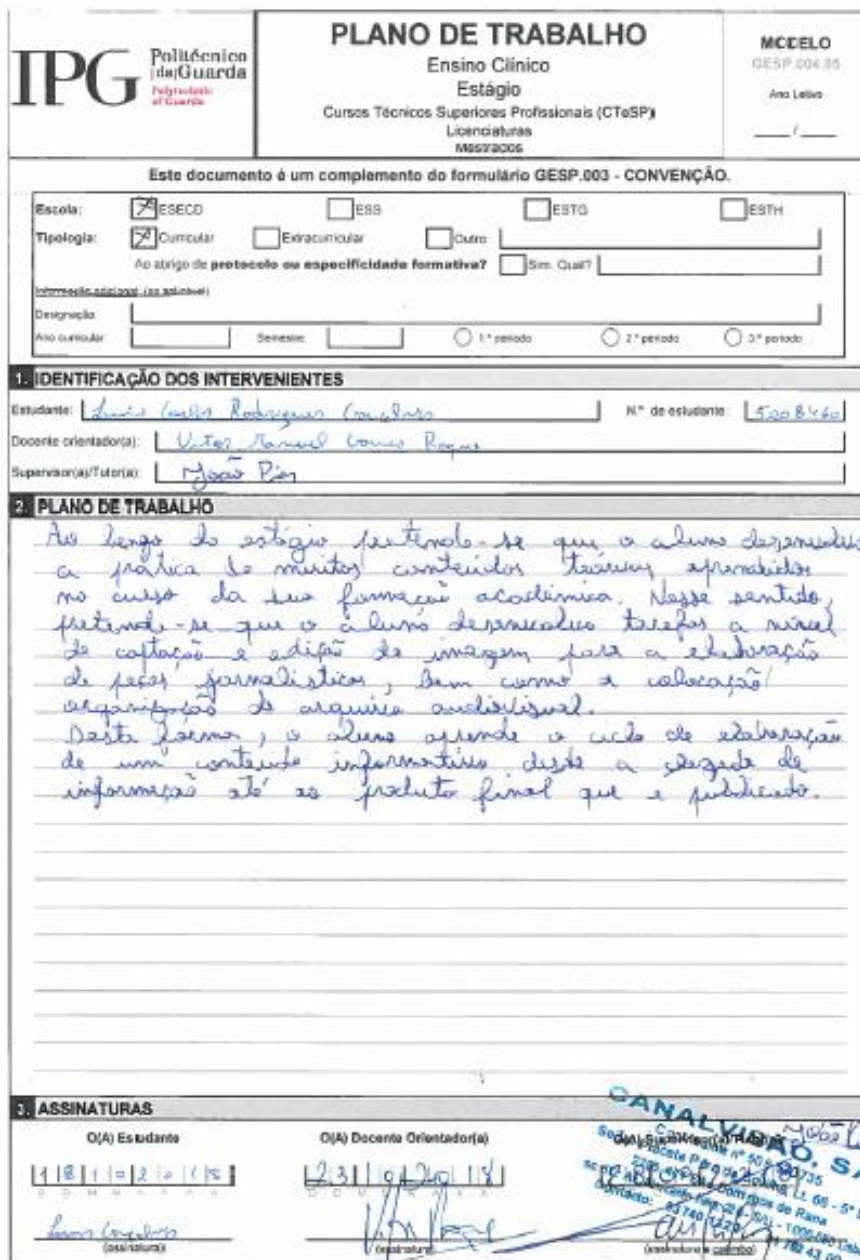 IPG Politécnico da Guarda
Polytechnic of Guarda
PLANO DE TRABALHO
Ensino Clínico
Estágio
Cursos Técnicos Superiores Profissionais (CTeSP)
Licenciaturas
Mestrados
MODELO
GESP.004.05
Ano Letivo
___/___
Este documento é um complemento do formulário GESP.003 - CONVENÇÃO.
Escola: ESECD ESS ESTG ESTH
Tipologia: Curricular Extracurricular Outro
Ao abrigo de protocolo ou especificidade formativa? Sim. Qual?
Informação adicional (se aplicável)
Designação
Ano curricular: Semestre: 1.º período 2.º período 3.º período
1. IDENTIFICAÇÃO DOS INTERVENIENTES
Estudante: Luis Carlos Rodrigues Gonçalves N.º de estudante: 5008460
Docente orientador(a): Vitor Manuel Gomes Roque
Supervisor(a)/Tutor(a): João
2. PLANO DE TRABALHO
Ao longo do estágio pretende-se que o aluno desenvolva
a prática de muitos conteúdos teóricos aprendidos
no curso da sua formação académica. Nesse sentido,
pretende-se que o aluno desenvolva tarefas a nível
de captação e edição de imagem para a elaboração
de peças jornalísticas, bem como a colocação/
organização do arquivo audiovisual.
Desta forma, o aluno aprende o ciclo de elaboração
de um conteúdo informativo desde a chegada de
informação até ao produto final que é publicado.
3. ASSINATURAS
O(A) Estudante
18102018
D D M M A A A A
Luis Gonçalves
(assinatura)
O(A) Docente Orientador(a)
23102018
D D M M A A A A
(assinatura)
CANALVISÃO, SA
(assinatura e carimbo)